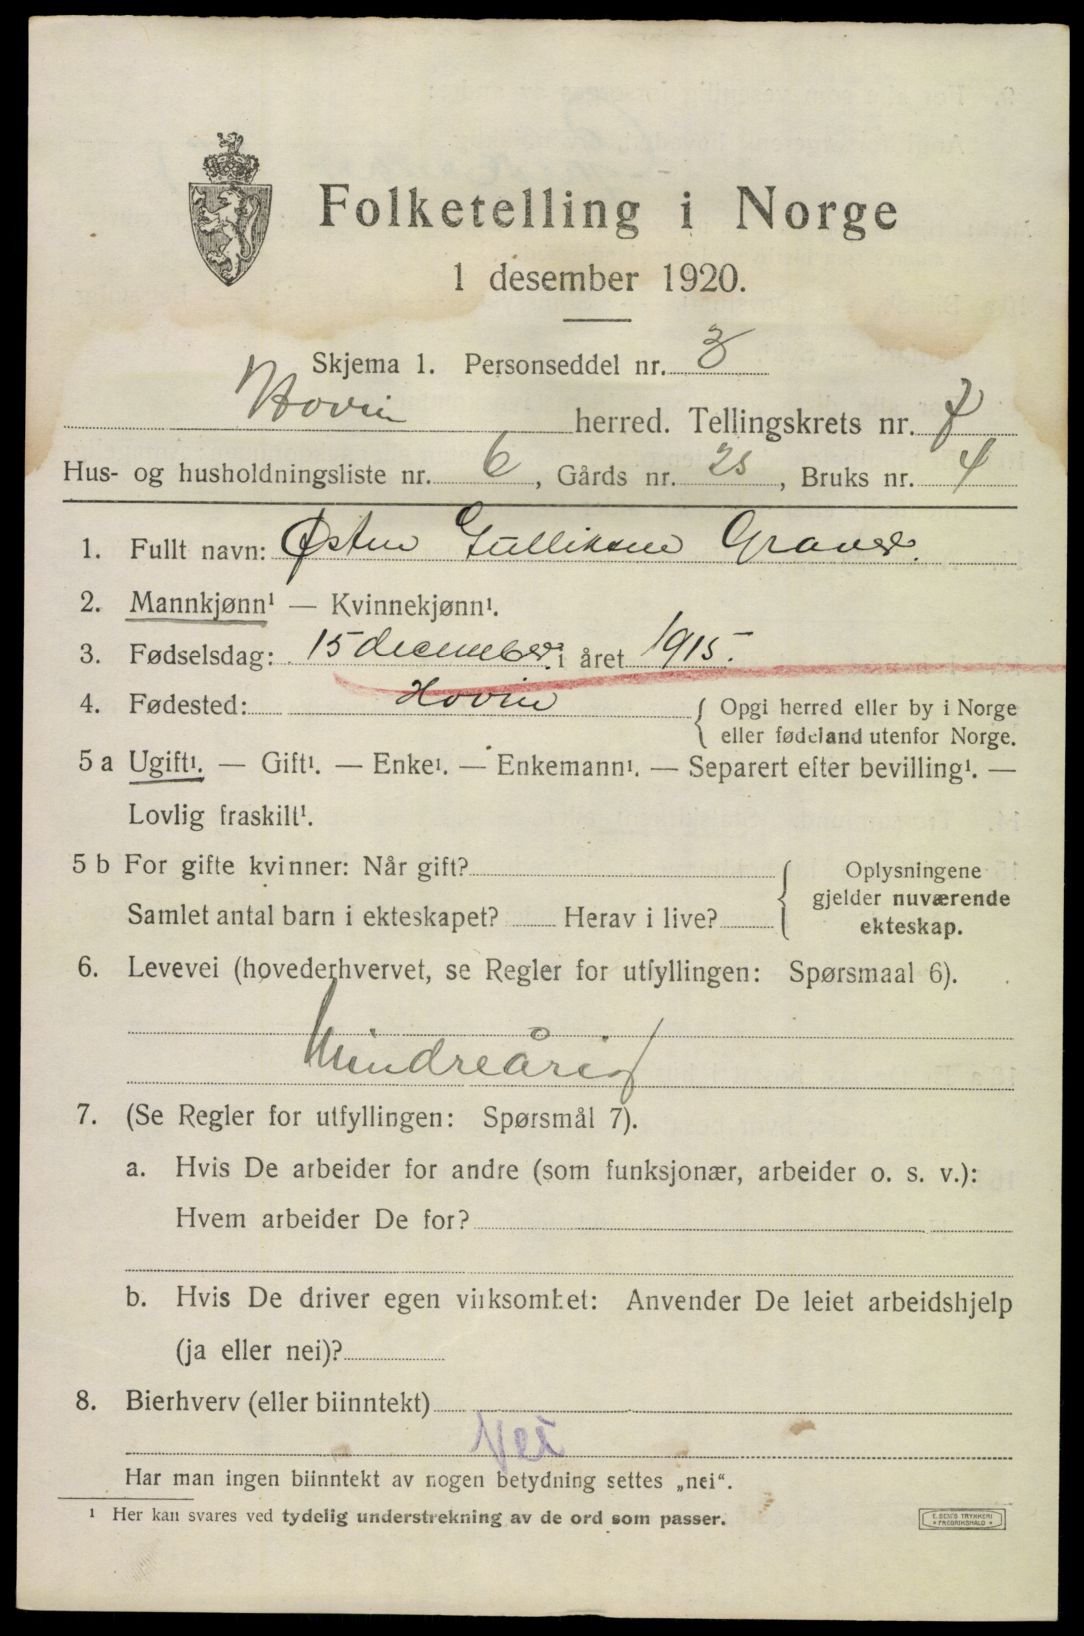 Folketelling i Norge
1 desember 1920.
Skjema 1. Personseddel nr. 3
Hovin herred. Tellingskrets nr. 7
Hus- og husholdningsliste nr. 6, Gårds nr. 25, Bruks nr. 4
1. Fullt navn: Østen Gulliksen Graver.
2. Mannkjønn¹ — Kvinnekjønn¹.
3. Fødselsdag: 15 december i året 1915.
4. Fødested: Hovin { Opgi herred eller by i Norge
eller fødeland utenfor Norge.
5 a Ugift¹. — Gift¹. — Enke¹. — Enkemann¹. — Separert efter bevilling¹. —
Lovlig fraskilt¹.
5 b For gifte kvinner: Når gift?
Samlet antal barn i ekteskapet? Herav i live?
{ Oplysningene
gjelder nuværende
ekteskap.
6. Levevei (hovederhvervet, se Regler for utfyllingen: Spørsmaal 6).
Mindreårig
7. (Se Regler for utfyllingen: Spørsmål 7).
a. Hvis De arbeider for andre (som funksjonær, arbeider o. s. v.):
Hvem arbeider De for?
b. Hvis De driver egen virksomhet: Anvender De leiet arbeidshjelp
(ja eller nei)?
8. Bierhverv (eller biinntekt)
Nei
Har man ingen biinntekt av nogen betydning settes „nei“.
¹ Her kan svares ved tydelig understrekning av de ord som passer.
E. SEM'S TRYKKERI
• FREDRIKSHALD •